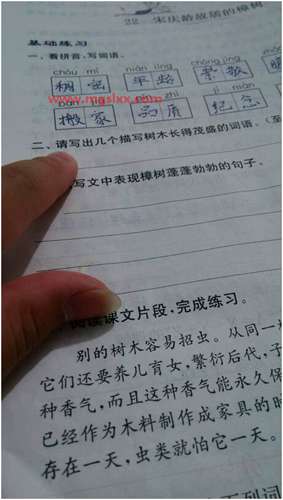 22 宋庆龄故居的樟树
基础练习
一、看拼音，写词语。
chóu mì nián líng chóng jìng
稠密 年龄 崇敬
bān zhì jì niàn
搬家 品质 纪念
www.mgslxx.com
二、请写出几个描写树木长得茂盛的词语。(至
写文中表现樟树蓬蓬勃勃的句子。
阅读课文片段，完成练习。
别的树木容易招虫。从同一
它们还要养儿育女，繁衍后代，子
种香气，而且这种香气能永久保
已经作为木料制作成家具的时
存在一天，虫类就怕它一天。
列词